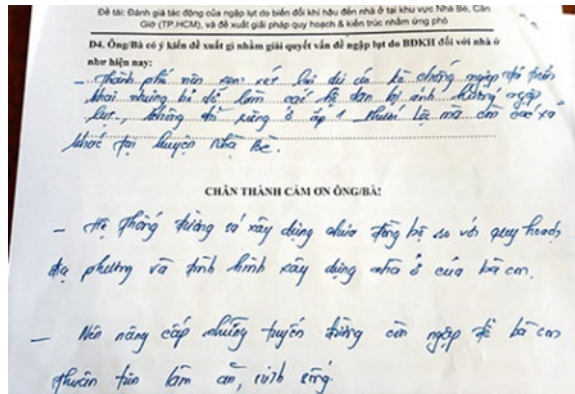 Đề tài: Đánh giá tác động của ngập lụt do biến đổi khí hậu đến nhà ở tại khu vực Nhà Bè, Cần
Giờ (TP.HCM), và đề xuất giải pháp quy hoạch & kiến trúc nhằm ứng phó
D4. Ông/Bà có ý kiến đề xuất gì nhằm giải quyết vấn đề ngập lụt do BĐKH đối với nhà ở
như hiện nay:
- Thành phố nên xem xét lại dự án kè chống ngập đã triển
khai nhưng bỏ dở làm các hộ dân bị ảnh hưởng ngập
lụt, không chỉ riêng ở ấp 1 Phước Lộc mà còn các xã
khác tại huyện Nhà Bè.
CHÂN THÀNH CẢM ƠN ÔNG/BÀ!
- Hệ thống đường sá xây dựng chưa đồng bộ so với quy hoạch
địa phương và tình hình xây dựng nhà ở của bà con.
- Nên nâng cấp những tuyến đường còn ngập để bà con
thuận tiện làm ăn, sinh sống.